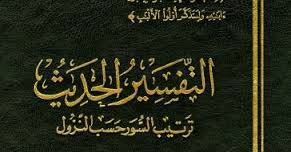 وليتذكر أولوا الألباب ﴾
التفسير الحديث
ترتيب السور حسب النزول